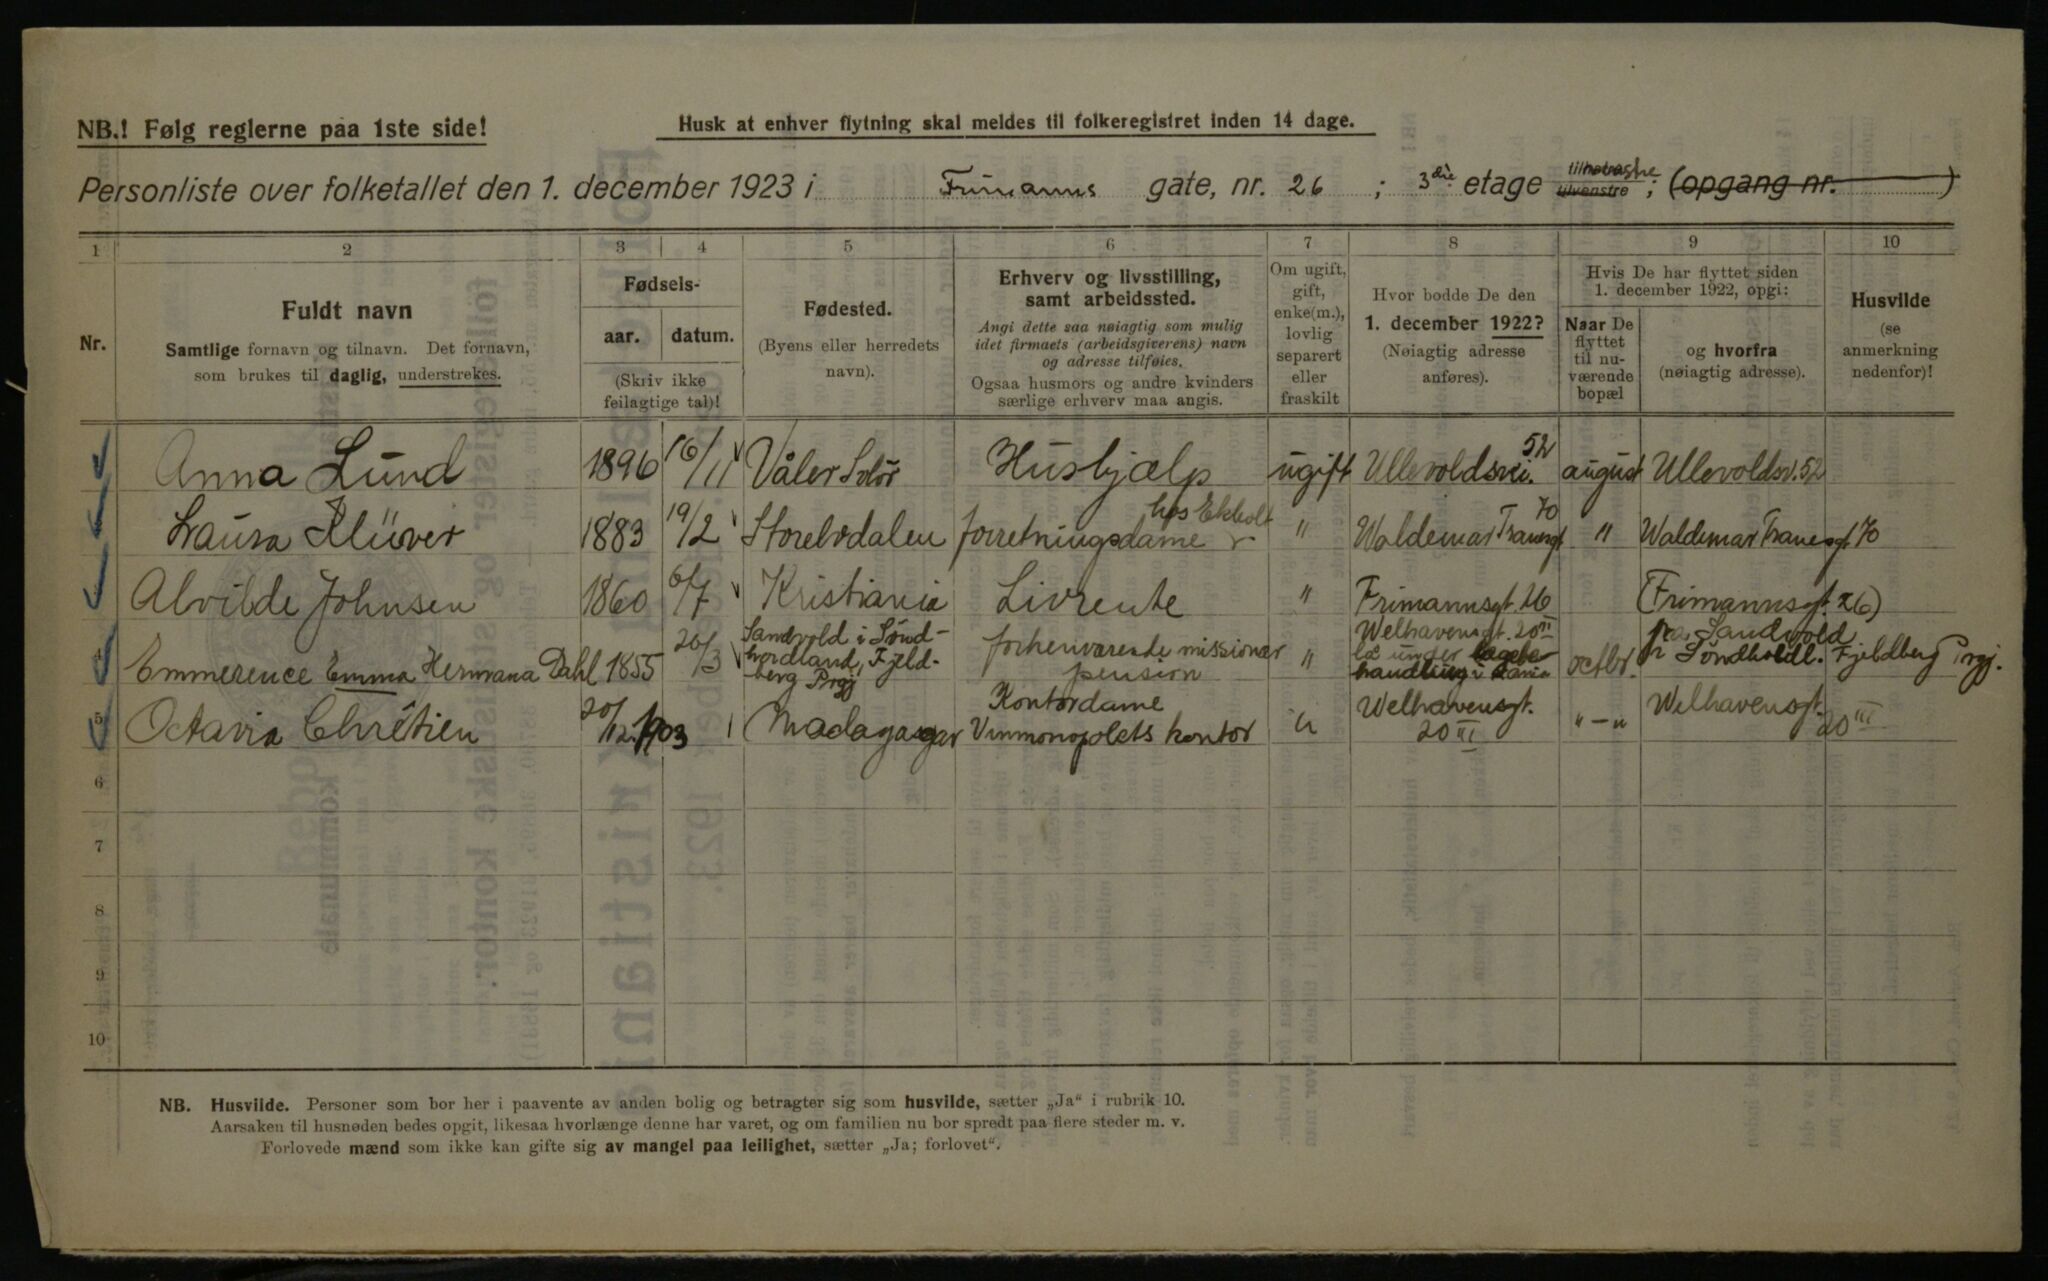 NB.! Følg reglerne paa 1ste side!
Husk at enhver flytning skal meldes til folkeregistret inden 14 dage.
Personliste over folketallet den 1. december 1923 i Frimanns gate, nr. 26 ; 3die etage tilhøire tilvenstre ; (opgang nr. )
1 2 3 4 5 6 7 8 9 10
Nr.
Fuldt navn
Samtlige fornavn og tilnavn. Det fornavn,
som brukes til daglig, understrekes.
Fødsels-
aar. datum.
(Skriv ikke
feilagtige tal)!
Fødested.
(Byens eller herredets
navn).
Erhverv og livsstilling,
samt arbeidssted.
Angi dette saa nøiagtig som mulig
idet firmaets (arbeidsgiverens) navn
og adresse tilføies.
Ogsaa husmors og andre kvinders
særlige erhverv maa angis.
Om ugift,
gift,
enke(m.),
lovlig
separert
eller
fraskilt
Hvor bodde De den
1. december 1922?
(Nøiagtig adresse
anføres).
Hvis De har flyttet siden
1. december 1922, opgi:
Naar De
flyttet
til nu-
værende
bopæl
og hvorfra
(nøiagtig adresse).
Husvilde
(se
anmerkning
nedenfor)!
Anna Lund 1896 16/11 Våler Solør Hushjælp ugift Ullevoldsvei. 52 august Ullevoldsv. 52
Laura Klüver 1883 19/2 Storelvdalen forretningsdame hos Ekholt " Waldemar Tranesgt 70 " Waldemar Tranesgt 70
Alvilde Johnsen 1860 6/7 Kristiania Livrente " Frimannsgt. 26 (Frimannsgt. 26)
4 Emmerence Emma Hermana Dahl 1855 20/3 Sandvold i Sönd-
hordland, Fjeld-
berg Prgj
forhenværende missionær
pension
" Welhavensgt. 20 III
under
handling i
octbr. fra Sandvold
Söndholdl. Fjeldberg Prgj.
5 Octavia Chrétien 20/12 1903 Madagasgar Kontordame
Vinmonopolets kontor
" Welhavensgt.
20 III
" — " Welhavensgt.
20 III
6
7
8
9
10
NB. Husvilde. Personer som bor her i paavente av anden bolig og betragter sig som husvilde, sætter „Ja“ i rubrik 10.
Aarsaken til husnøden bedes opgit, likesaa hvorlænge denne har varet, og om familien nu bor spredt paa flere steder m. v.
Forlovede mænd som ikke kan gifte sig av mangel paa leilighet, sætter „Ja; forlovet“.